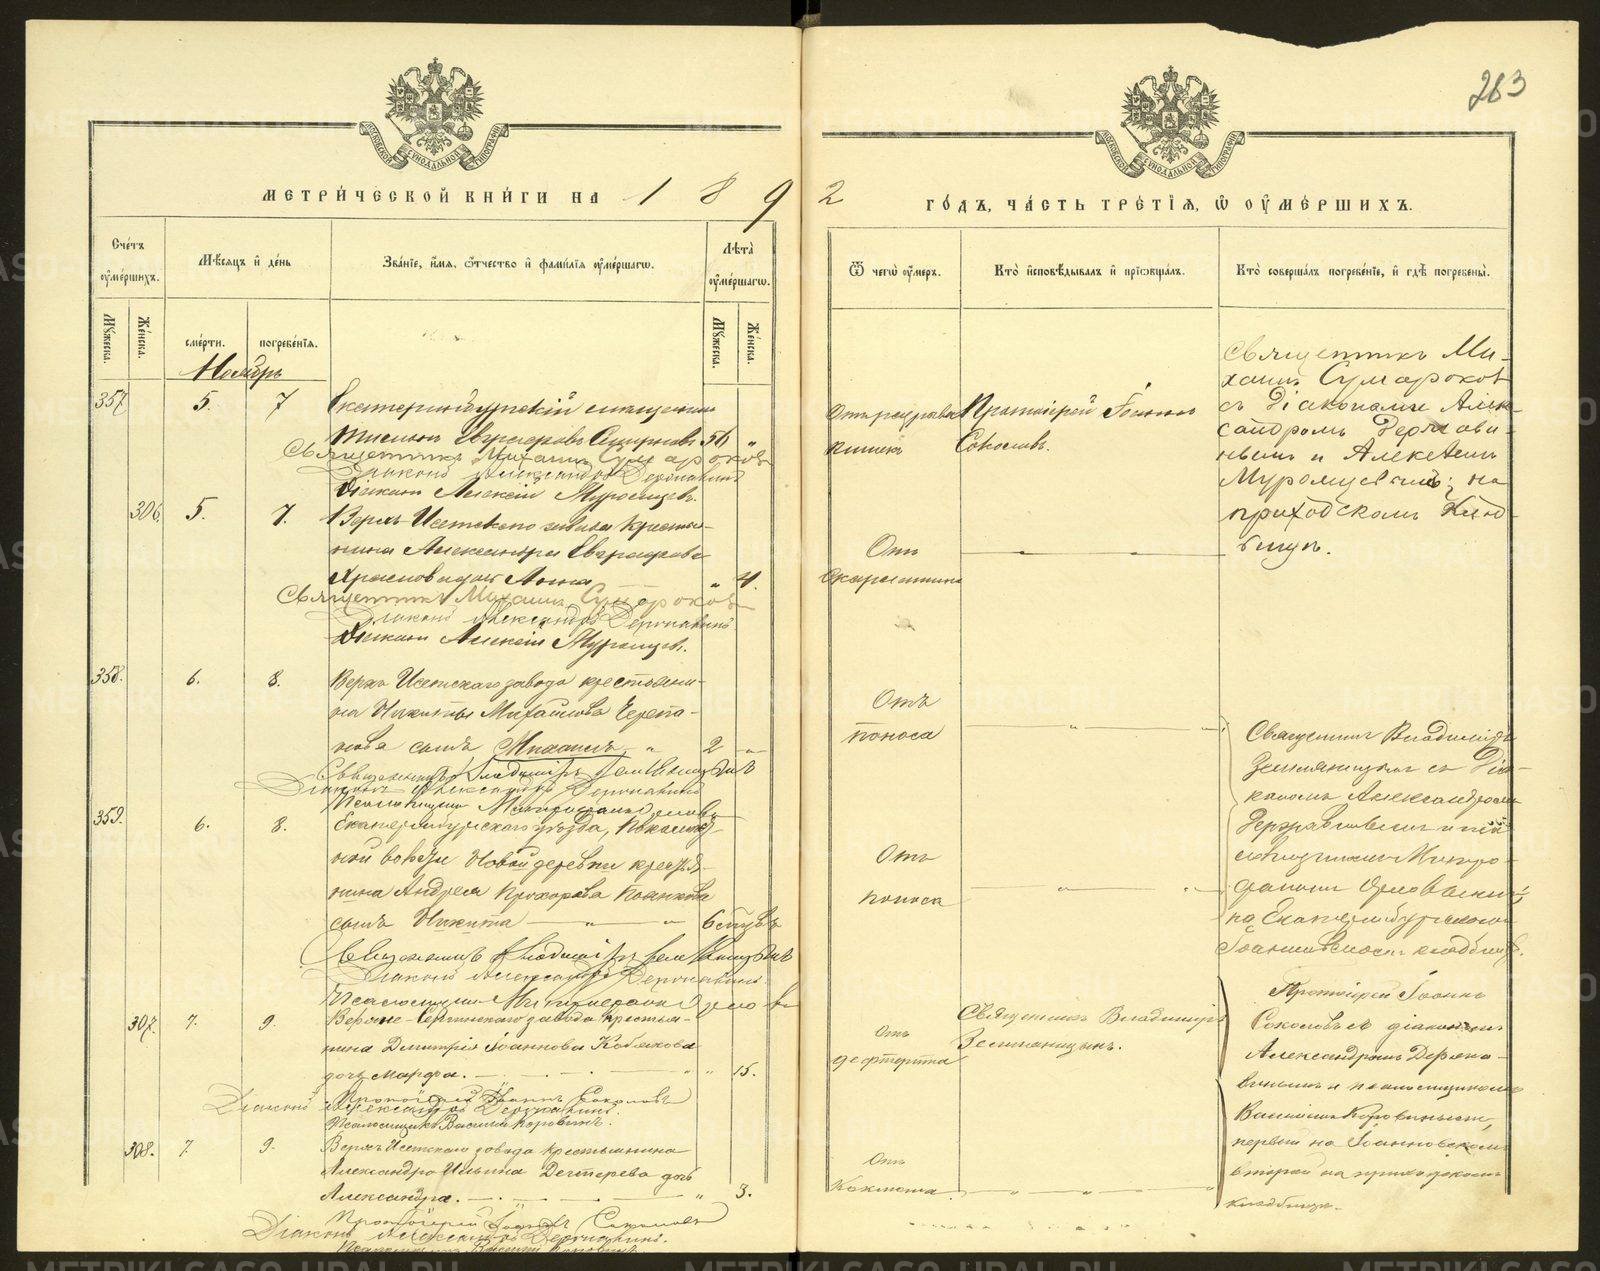 263
МОСКОВСКОЙ СѴНОДАЛЬНОЙ ТИПОГРАФІИ
МОСКОВСКОЙ СѴНОДАЛЬНОЙ ТИПОГРАФІИ
МЕТРИ́ЧЕСКОЙ КНИ́ГИ НА 1892 ГО́ДЪ, ЧА́СТЬ ТРЕ́ТІѦ, Ѽ ОУМЕ́РШИХЪ.
Сче́тъ оуме́ршихъ.
Мꙋ́жеска.
Же́нска.
Мѣ́сяцъ и҆ де́нь
сме́рти.
погребе́нїѧ.
Зва́нїе, и҆́мѧ, ѻ҆́тчество и҆ фами́лїѧ оуме́ршагѡ.
Лѣ́та оуме́ршагѡ.
Мꙋ́жеска.
Же́нска.
Ѿ чегѡ̀ оу҆́меръ.
Кто̀ и҆сповѣ́дывалъ и҆ прїѡбща́лъ.
Кто̀ соверша́лъ погребе́нїе, и҆ гдѣ̀ погребены̀.
Ноябрь
357
5.
7
Екатеринбургскій мѣщанинъ
Евграфовъ Смирновъ 56 "
Священникъ Михаилъ Сумароковъ
Діаконъ Александръ Державинъ
Діаконъ Алексій Муромцевъ.
Отъ разрыва
Протоіерей Іоаннъ
Соколовъ.
Священникъ Ми-
хаилъ Сумароковъ
съ діаконами Алек-
сандромъ Держави-
нымъ и Алексѣемъ
Муромцевымъ; на
приходскомъ клад-
бищѣ.
306
5.
7.
Верхъ Исетскаго завода крестья-
нина Александра Евграфова
Анна " 4.
Священникъ Михаилъ Сумароковъ
Діаконъ Александръ Державинъ
Діаконъ Алексій Муромцевъ.
Отъ
скарлатины
358.
6.
8.
Верхъ Исетскаго завода крестьяни-
на Никиты Михайлова Черепа-
нова сынъ Михаилъ " 2 "
Священникъ Владиміръ Земляницынъ
Діаконъ Александръ Державинъ
Отъ
поноса
Священникъ Владиміръ
Земляницынъ съ Діа-
кономъ Александромъ
Державинымъ и пса-
ломщикомъ Митро-
фаномъ
на Екатеринбургскомъ
Іоанновскомъ кладбищѣ.
359.
6.
8.
Екатеринбургскаго уѣзда,
ной волости Новой деревни крестья-
нина Андрея Прохорова
сынъ Никита " " 6 мѣсяц.
Священникъ Владиміръ Земляницынъ
Діаконъ Александръ Державинъ.
Псаломщикъ Митрофанъ
Отъ
поноса
307.
7.
9.
Верхне-Сергинскаго завода крестья-
нина Димитрія Іоаннова Кобякова
дочь Марфа. " " 15.
Протоіерей Іоаннъ Соколовъ
Діаконъ Александръ Державинъ.
Псаломщикъ Василій Коровинъ.
Отъ
дефтерита
Священникъ Владиміръ
Земляницынъ.
Протоіерей Іоаннъ
Соколовъ съ діакономъ
Александромъ Держа-
винымъ и псаломщикомъ
Василіемъ Коровинымъ,
первый на Іоанновскомъ
второй на приходскомъ
кладбищѣ.
308.
7.
9.
Верхъ Исетскаго завода крестьянина
Александра Ильина Дегтерева дочь
Александра. " 3.
Протоіерей Іоаннъ Соколовъ
Діаконъ Александръ Державинъ.
Псаломщикъ Василій Коровинъ
Отъ
Коклюша.
METRIKI.GASO-URAL.RU